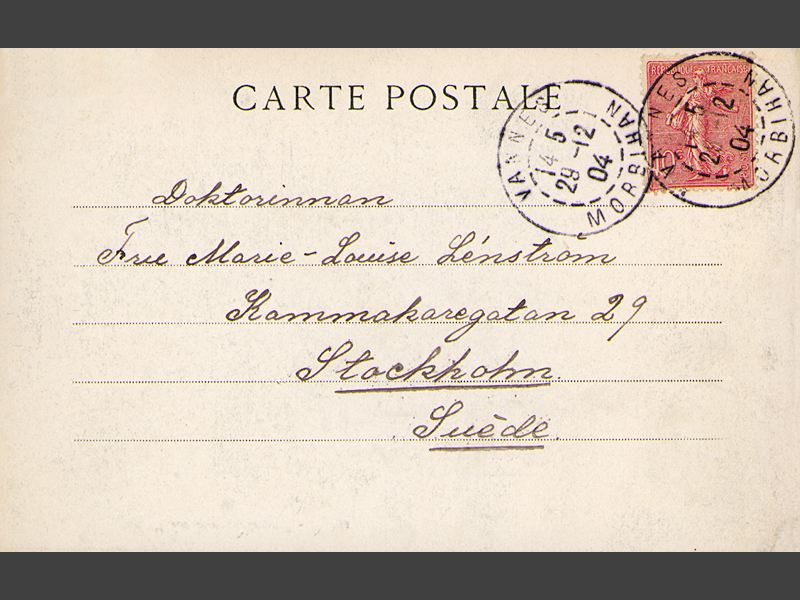 CARTE POSTALE
REPUBLIQUE FRANÇAISE
VANNES
14 5
29 -12
04
MORBIHAN
VANNES
5
12
04
MORBIHAN
Doktorinnan
Fru Marie-Louise Lénström
Kammakaregatan 29
Stockholm
Suède.